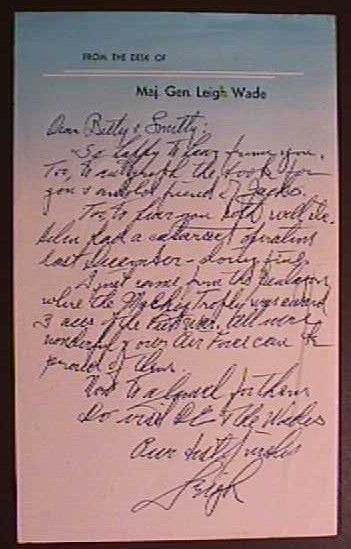 FROM THE DESK OF
Maj. Gen. Leigh Wade
Dear Betty & Smitty:
So happy to hear from you.
Too, to autograph the book for
you & an old friend of Jack's.
Too, to hear you both well, etc.
had a cataract operation
last December - doing fine
I just came from the Pentagon
where the Mackay trophy was award
3 aces of the war. All were
wonderful & our Air Force can be
proud of them.
Now to a lunch for them
Do visit DC & the Wades
Our best wishes
Leigh